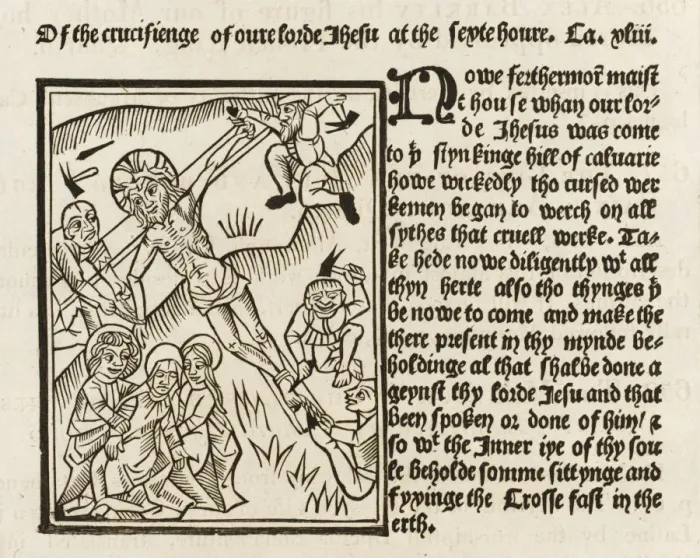 Of the crucifienge of oure lorde Jhesu at the sexte houre. Ca. xliii.
Nowe ferthermor maist
thou se whan our lor-
de Jhesus was come
to þͤ stynkinge hill of caluarie
howe wickedly tho cursed wer
kemen began to werch on all
sythes that cruell werke. Ta-
ke hede nowe diligently wͭ all
thyn herte also tho thynges þͭ
be nowe to come and make the
there present in thy mynde be-
holdinge al that shalbe done a
geynst thy lorde Jesu and that
been spoken or done of him/ ⁊
so wͭ the Inner iye of thy sou
le beholde somme sittynge and
fyxinge the Crosse fast in the
erth.